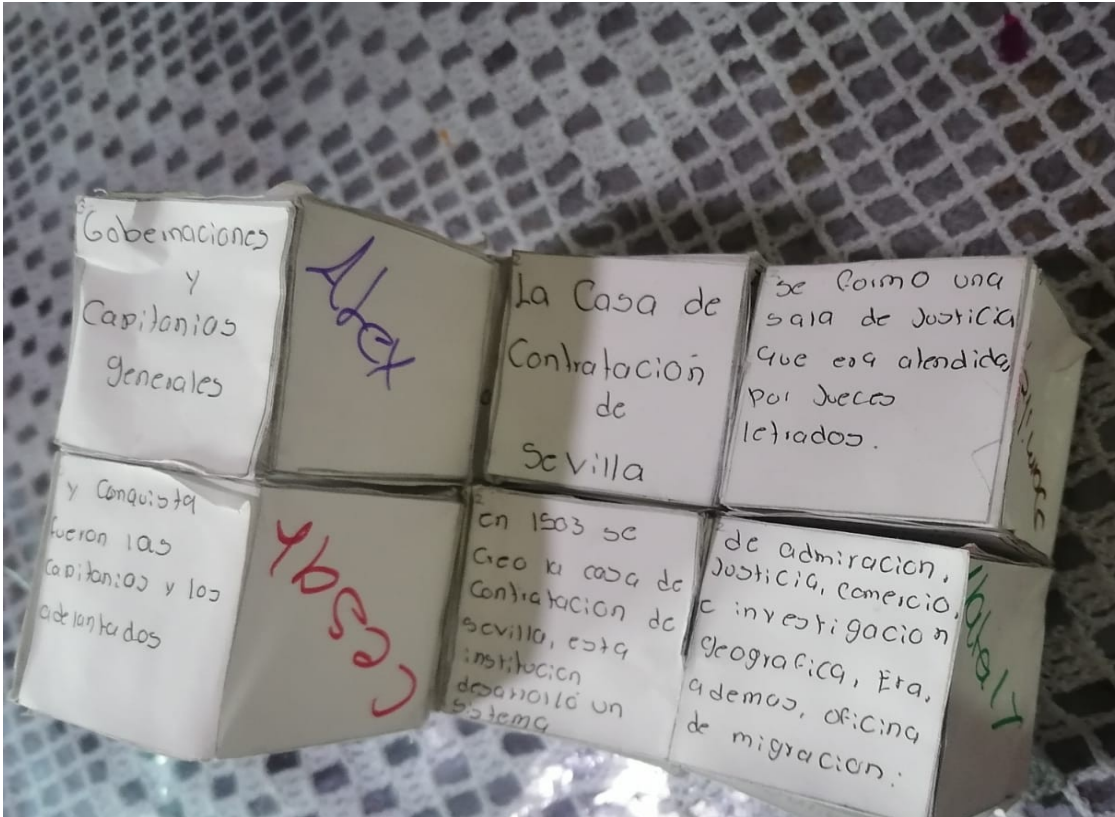 Gobernaciones
y
Capitanias
generales
Alex
La Casa de
Contratación
de
Sevilla
Se formo una
sala de Justicia
que era atendida
por Jueces
letrados.
y Conquista
fueron las
capitanias y los
adelantados
Cesar
En 1503 se
creo la casa de
contratacion de
sevilla, esta
institucion
desarrolló un
sistema
de admiracion,
Justicia, comercio,
e investigacion
geografica, Era,
ademas, oficina
de migracion.